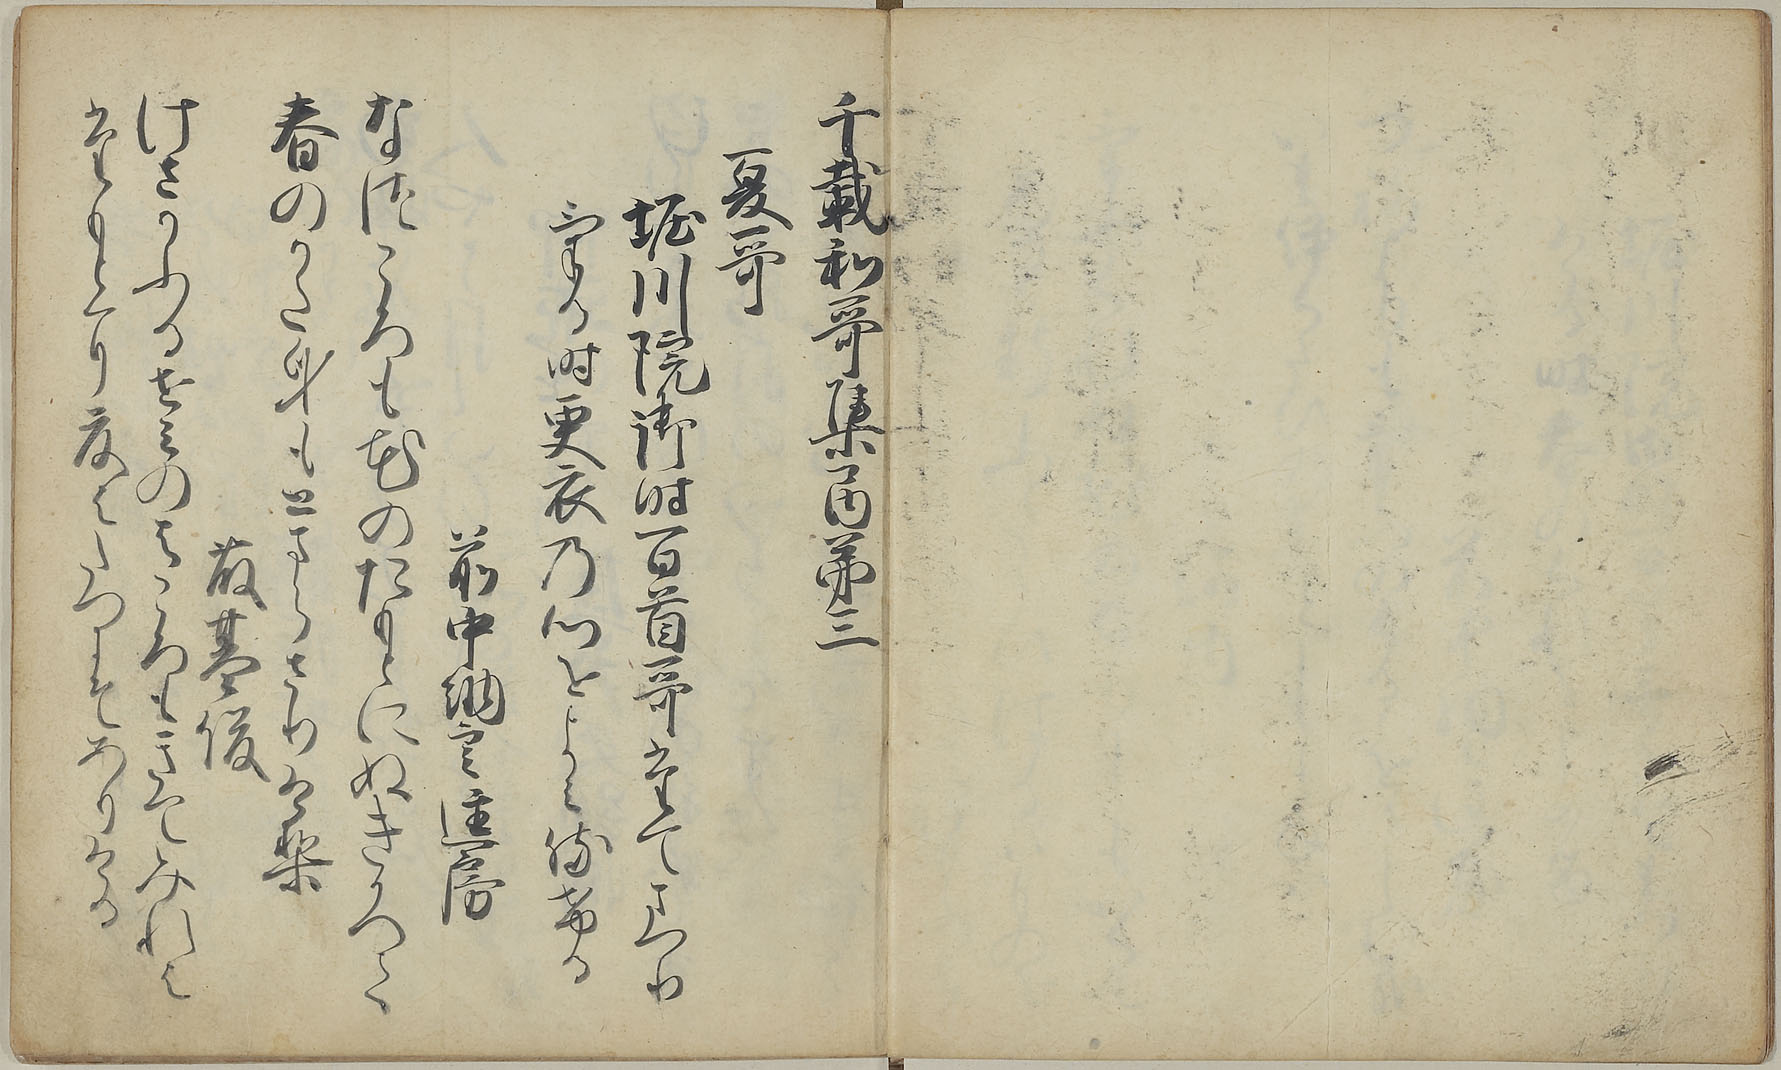 千載和哥集卷第三
夏哥
堀川院御時百首哥たてまつり
ける時更衣乃心をよみ侍ける
前中納言匡房
なつころも花のたもとにぬきかへて
春のかたみもとまらさりけり
藤基俊
けさかふるせみのはころもきてみれは
たもとに夏はたつにそありける